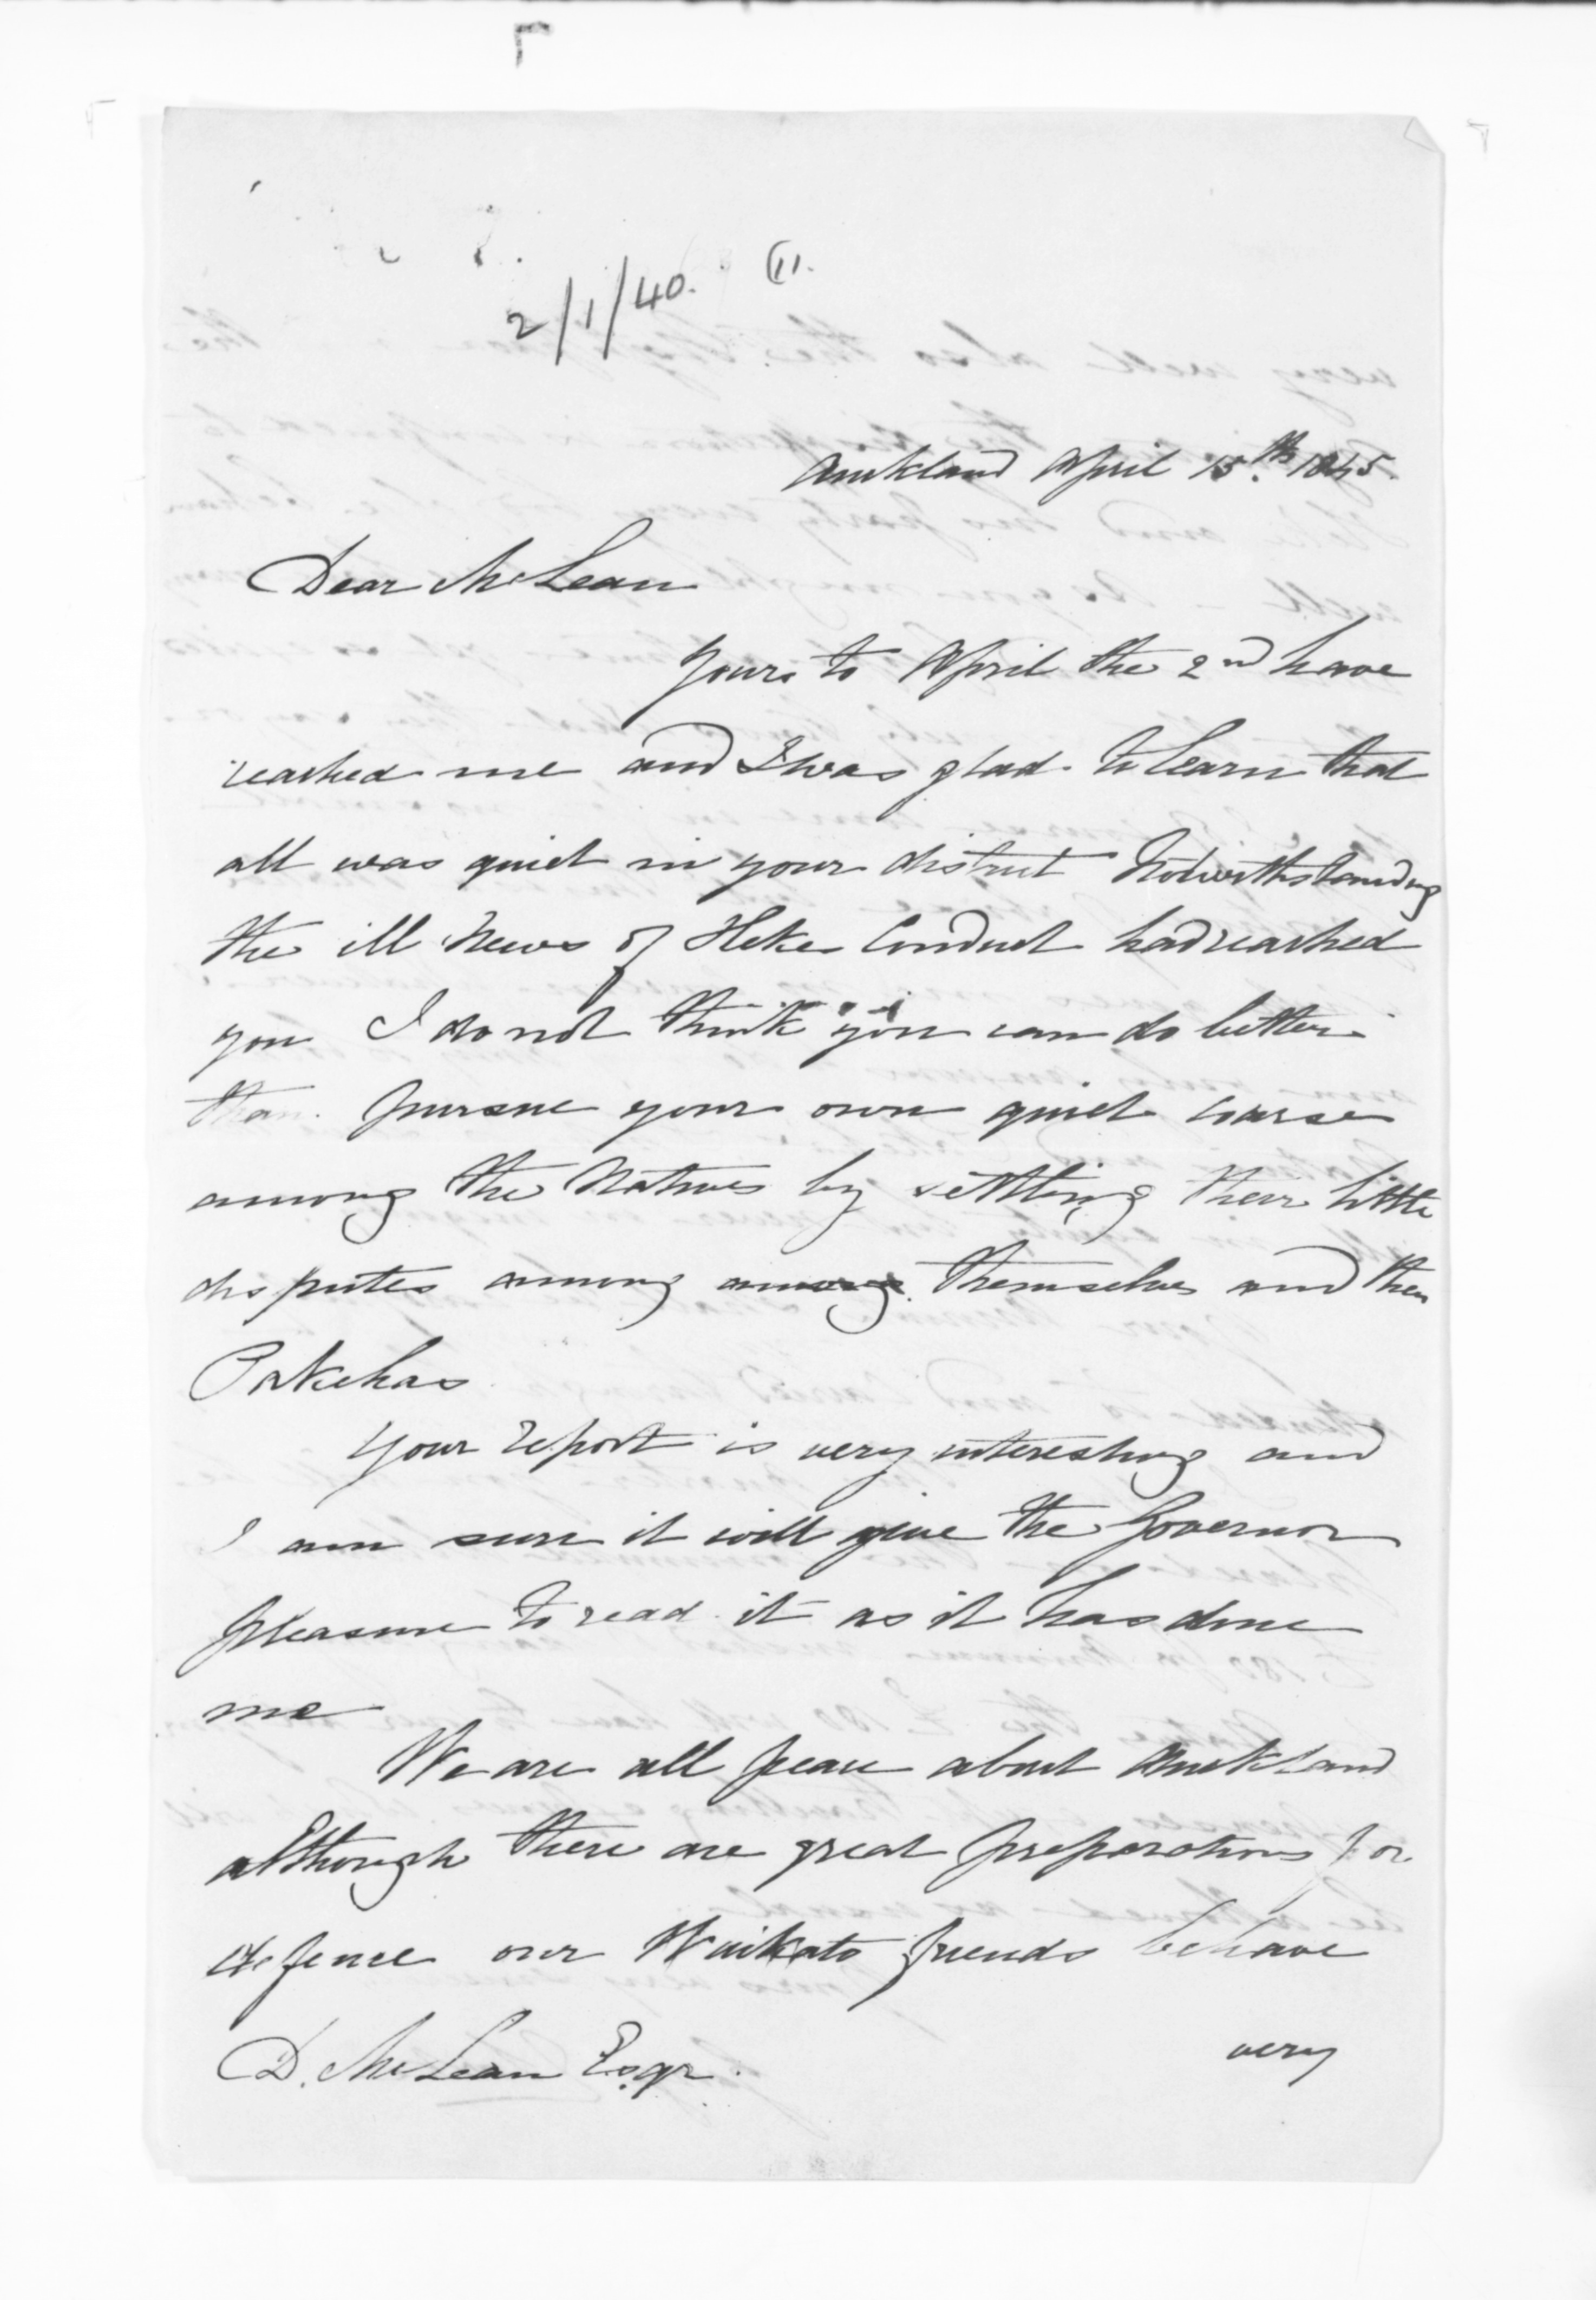 2/1/40. (11.
Auckland April 15.th 1845.
Dear McLean
Yours to April the 2nd have
reached me and I was glad to learn that
all was quiet in your district Notwithstanding
the ill News of Heke Conduct had reached
you I do not think you can do better
than pursue your own quiet course
among the Natives by settling their little
disputes among among themselves and then
Pakehas
Your report is very interesting and
I am sure it will give the Governor
pleasure to read it as it has done
me
We are all peace about Auckland
although there are great preparations for
defence our Waikato friends behave
D. McLean Esqr. very